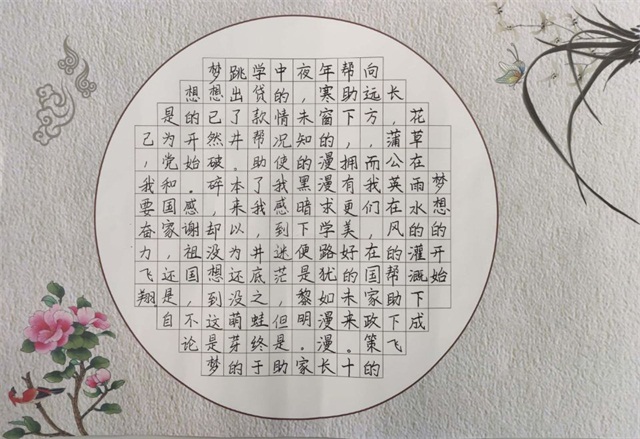 梦想的开始
花草在雨水的灌溉下成
长，蒲公英在风的帮助下飞
向远方，而我们，在国家政策的
帮助下，拥有更美好的未来。十
年寒窗的漫漫求学路犹如漫漫长
夜，未知的黑暗下便是黎明。家
中的情况使我感到迷茫，但是助
学贷款帮助了我，井底之蛙终于
跳出了井。本来以为还没萌芽的
梦想已然破碎，却没想到这是梦
想的开始。感谢祖国，不论
是为党和国家，还是自
己，我要奋力飞翔